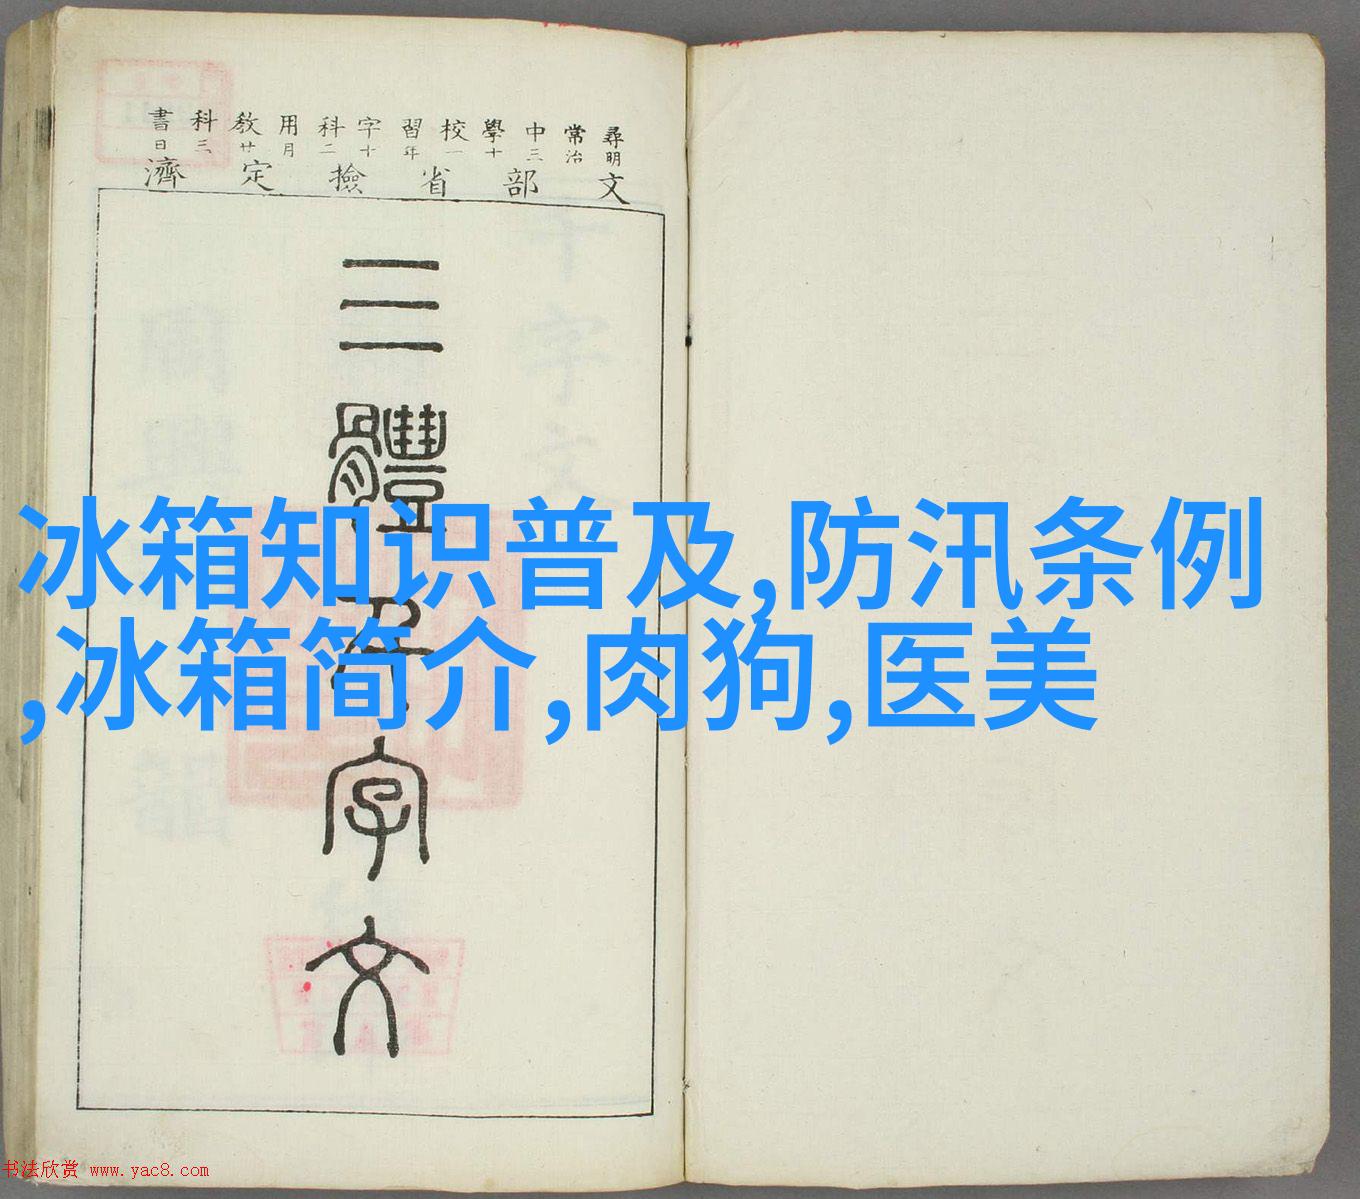 尋常中學校習字科用教科書
明治三十一年十二月廿三日
文部省檢定濟
三體千字文
冰箱知识普及,防汛条例
,冰箱简介,肉狗,医美
书法欣赏 www.yac8.com